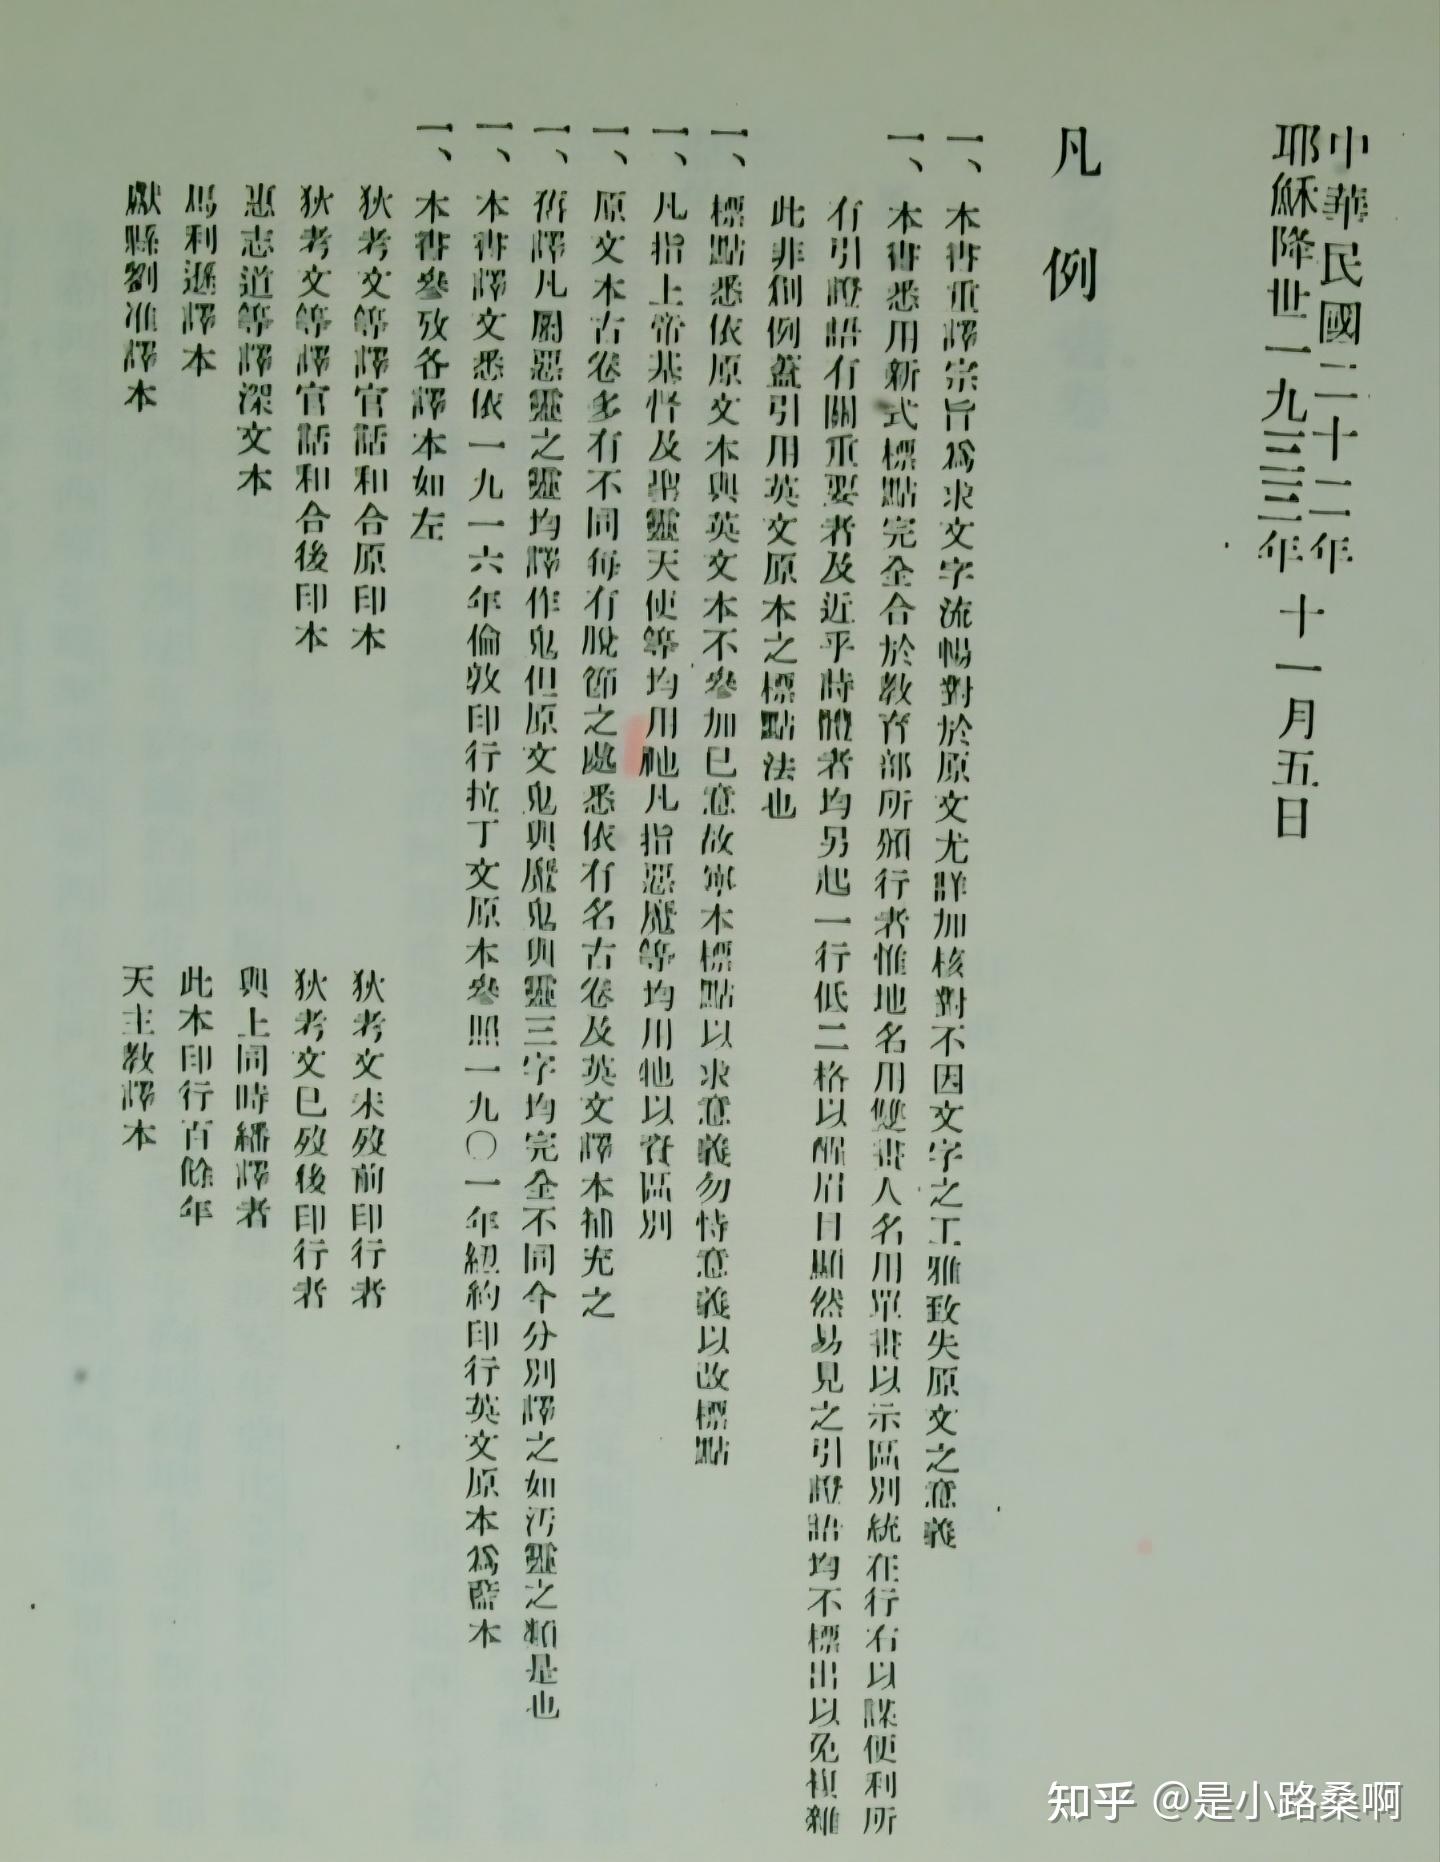 中華民國二十二年
耶穌降世一九三三年
十一月五日
凡例
一、本書重譯宗旨爲求文字流暢對於原文尤詳加核對不因文字之工雅致失原文之意義
一、本書悉用新式標點完全合於教育部所頒行者惟地名用雙畫人名用單畫以示區別統在行右以謀便利所
有引證語有關重要者及近乎詩體者均另起一行低二格以醒眉目顯然易見之引證語均不標出以免複雜
此非創例蓋引用英文原本之標點法也
一、標點悉依原文本與英文本不參加已意故寧本標點以求意義勿恃意義以改標點
一、凡指上帝基督及聖靈天使等均用祂凡指惡魔等均用牠以資區別
一、原文本古卷多有不同每有脫節之處悉依有名古卷及英文譯本補充之
一、舊譯凡屬惡靈之靈均譯作鬼但原文鬼與魔鬼與靈三字均完全不同今分別譯之如汚靈之類是也
一、本書譯文悉依一九一六年倫敦印行拉丁文原本參照一九〇一年紐約印行英文原本爲藍本
一、本書參攷各譯本如左
狄考文等譯官話和合原印本　狄考文未歿前印行者
狄考文等譯官話和合後印本　狄考文已歿後印行者
惠志道等譯深文本　與上同時繙譯者
馬利遜譯本　此本印行百餘年
獻縣劉准譯本　天主教譯本
知乎 @是小路桑啊